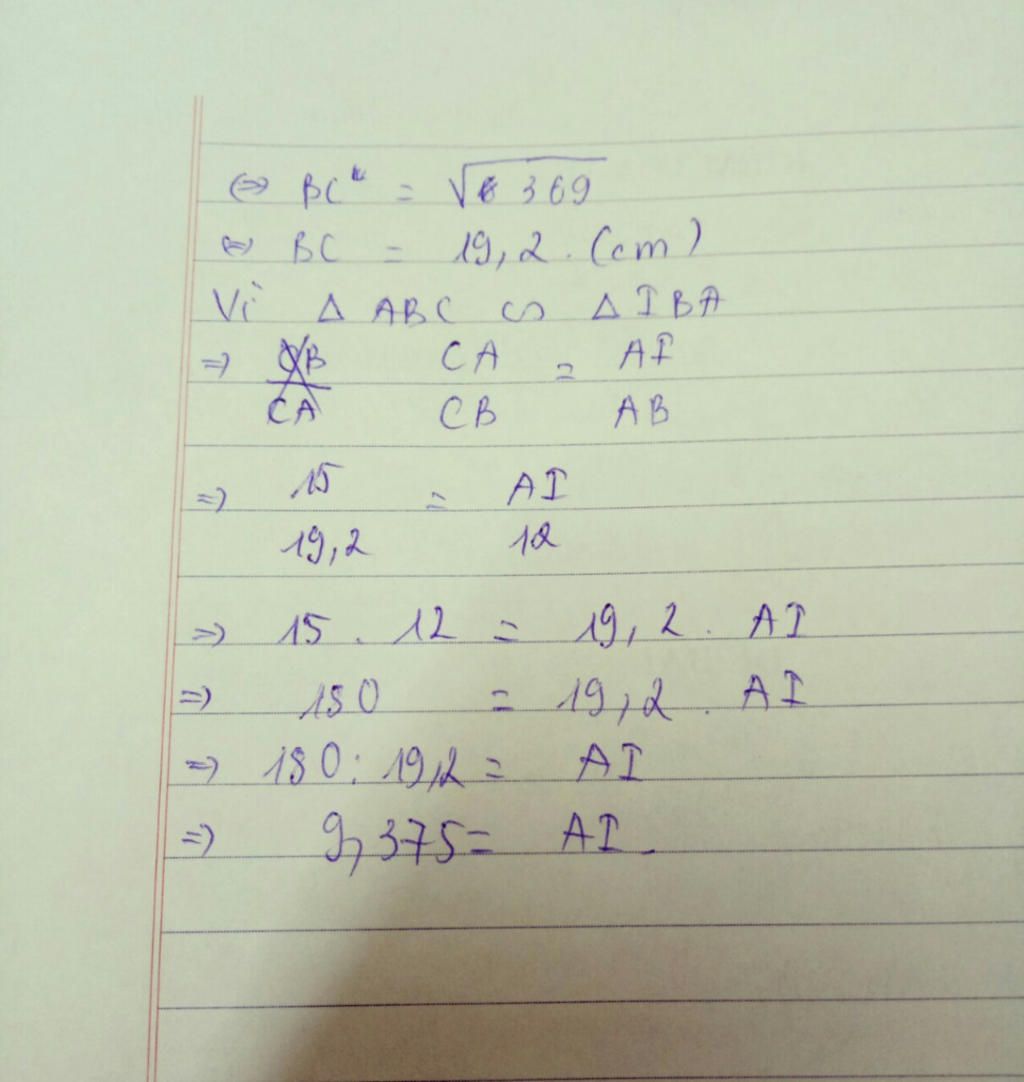 ⇔ BC = √369
⇔ BC = 19,2. (cm)
Vì Δ ABC ∽ Δ IBA
⇒ CA = AI
CB AB
⇒ 15 = AI
19,2 12
⇒ 15 . 12 = 19,2 . AI
⇒ 180 = 19,2 . AI
⇒ 180 : 19,2 = AI
⇒ 9,375 = AI.